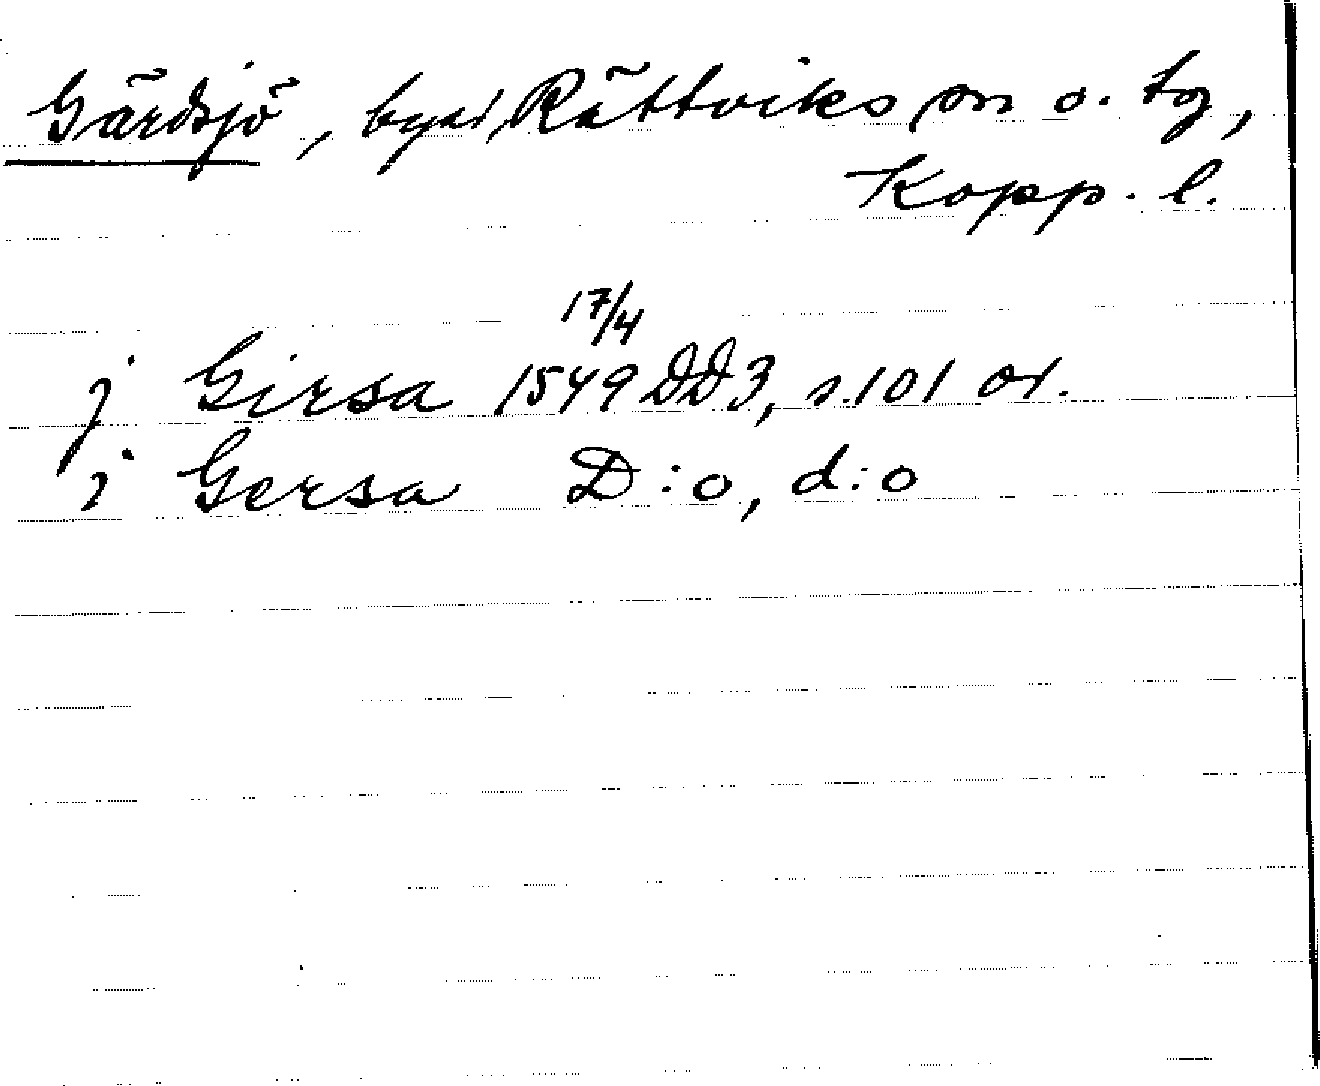 Gärdsjö, by i Rättviks sn o. tg,
Kopp. l.
17/4
j Girsa 1549 DD3, s. 101 or.
i Gersa D:o, d:o